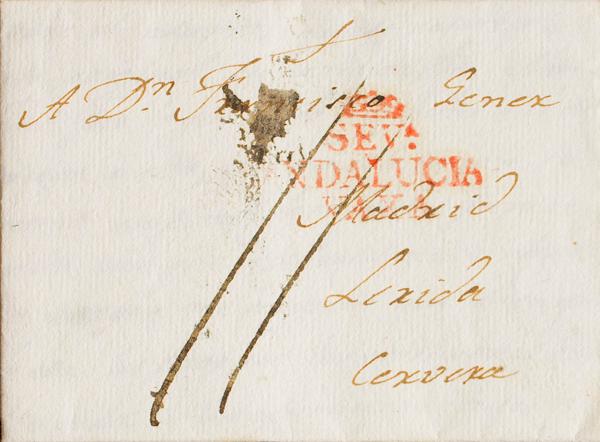 A Dn Francisco Gener
SEV.
ANDALUCIA
BAXA
Madrid
Lerida
Cervera